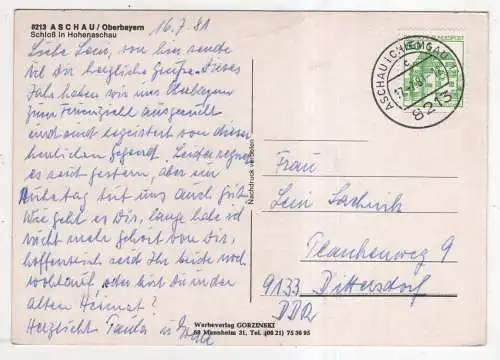 8213 ASCHAU / Oberbayern
Schloß in Hohenaschau
16.7.81
Liebe Leni, von hier sende
ich Dir herzliche Grüße. Dieses
Jahr haben wir uns Oberbayern
zum Ferienziehl ausgesucht
und sind begeistert von dieser
herrlichen Gegend. Leider regnet
es seit gestern, aber ein
Ruhetag tut uns auch gut.
Wie geht es Dir, lange habe ich
nicht mehr gehört von Dir,
hoffentlich seid Ihr beide noch
wohlauf, oder bist Du in der
alten Heimat?
Herzlichst Tante u.
Nachdruck verboten
DEUTSCHE BUNDESPOST
ASCHAU I CHIEMGAU
8213
Frau
Leni
Plankenweg 9
9133 Dittersdorf
DDR
Werbeverlag GORZINSKI
68 Mannheim 31, Tel. (06 21) 75 36 95